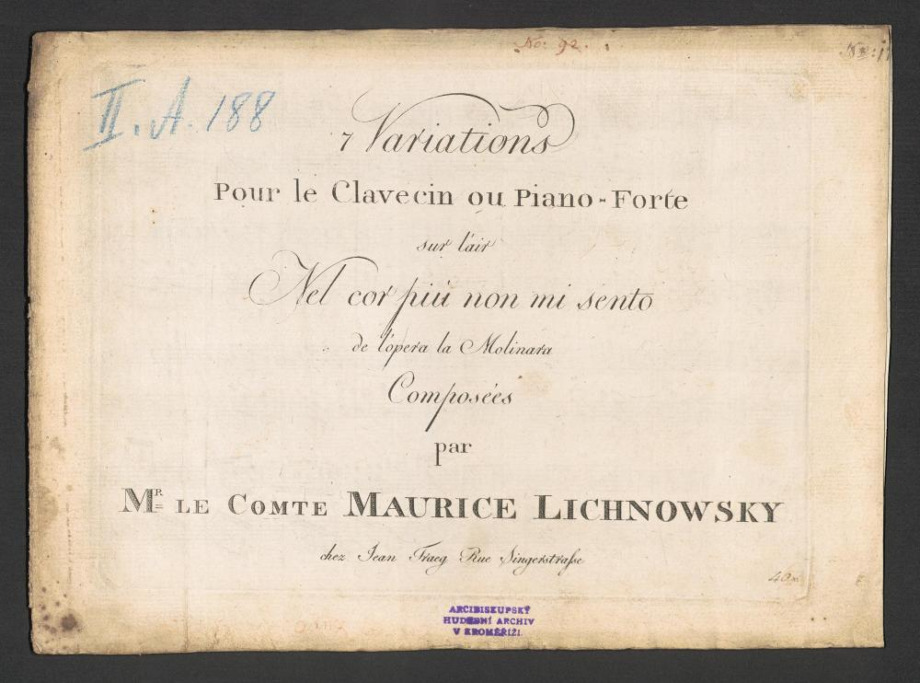 No: 92.
II. A. 188
7 Variations
Pour le Clavecin ou Piano-Forte
sur l'air
Nel cor più non mi sento
de l'opera la Molinara
Composées
par
MR LE COMTE MAURICE LICHNOWSKY
chez Jean Traeg Rue Singerstraſse
ARCIBISKUPSKÝ
HUDEBNÍ ARCHIV
V KROMĚŘÍŽI.